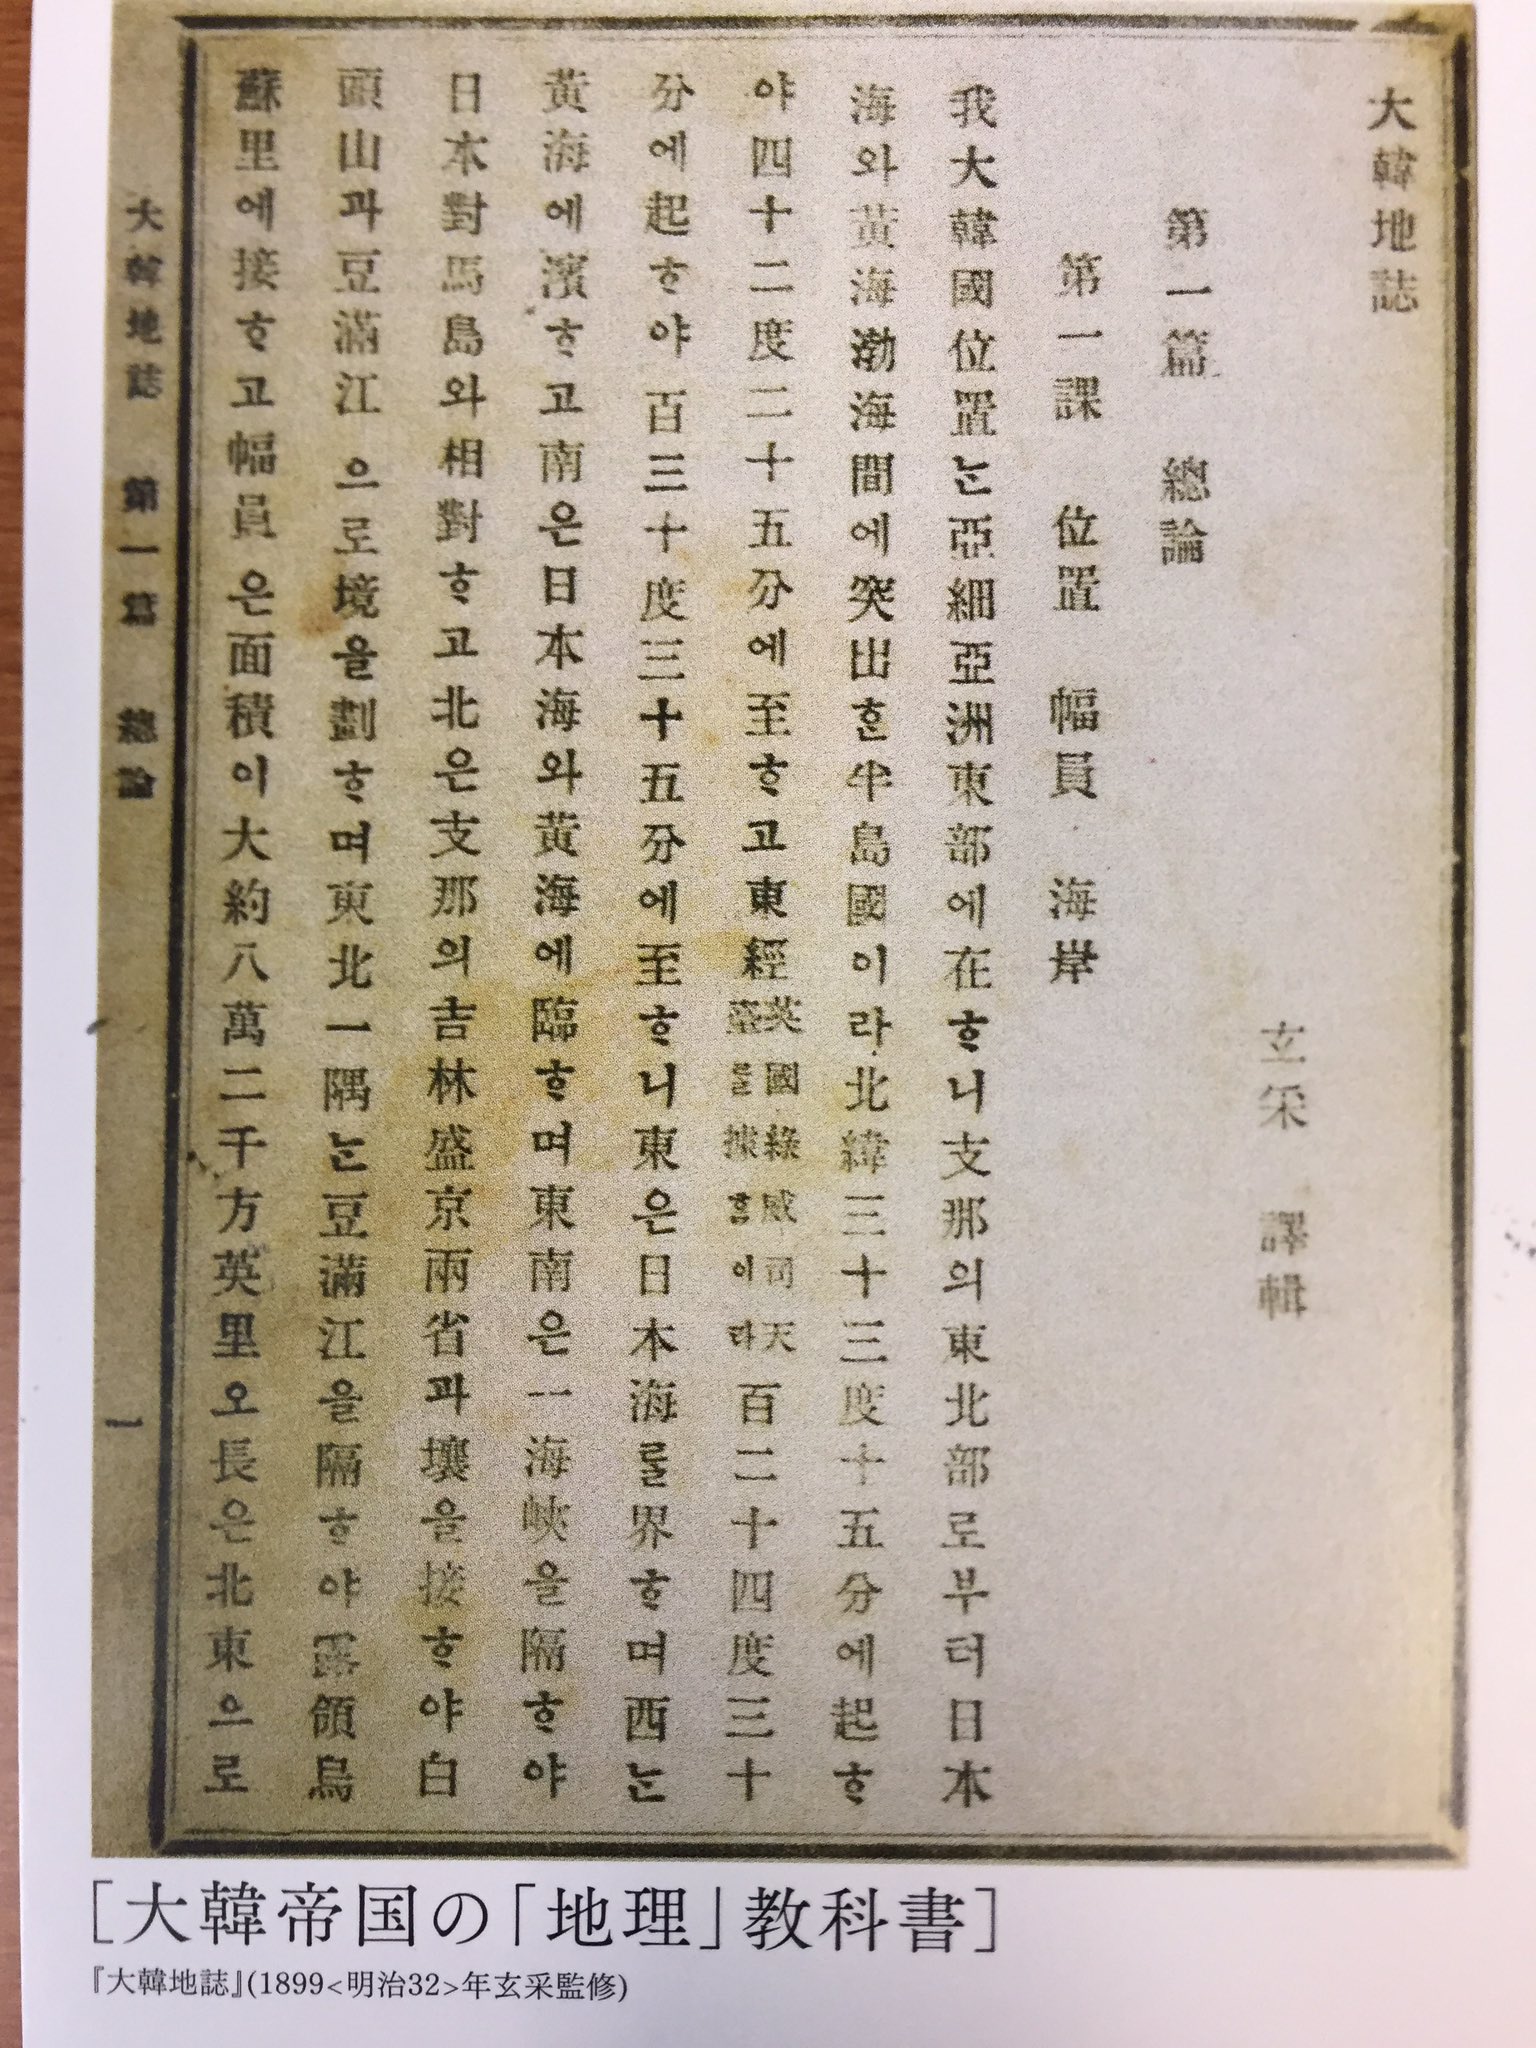 大韓地誌
玄采 譯輯
第一篇 總論
第一課 位置 幅員 海岸
我大韓國位置ᄂᆞᆫ亞細亞洲東部에在ᄒᆞ니支那의東北部로부터日本
海와黃海渤海間에突出ᄒᆞᆫ半島國이라北緯三十三度十五分에起ᄒᆞ
야四十二度二十五分에至ᄒᆞ고東經英國綠威司天臺를據홈이라百二十四度三十
分에起ᄒᆞ야百三十度三十五分에至ᄒᆞ니東은日本海ᄅᆞᆯ界ᄒᆞ며西ᄂᆞᆫ
黃海에濱ᄒᆞ고南은日本海와黃海에臨ᄒᆞ며東南은一海峽을隔ᄒᆞ야
日本對馬島와相對ᄒᆞ고北은支那의吉林盛京兩省과壤을接ᄒᆞ야白
頭山과豆滿江으로境을劃ᄒᆞ며東北一隅ᄂᆞᆫ豆滿江을隔ᄒᆞ야露領烏
蘇里에接ᄒᆞ고幅員은面積이大約八萬二千方英里오長은北東으로
大韓地誌 第一篇 總論 一
[大韓帝国の「地理」教科書]
『大韓地誌』(1899<明治32>年玄采監修)